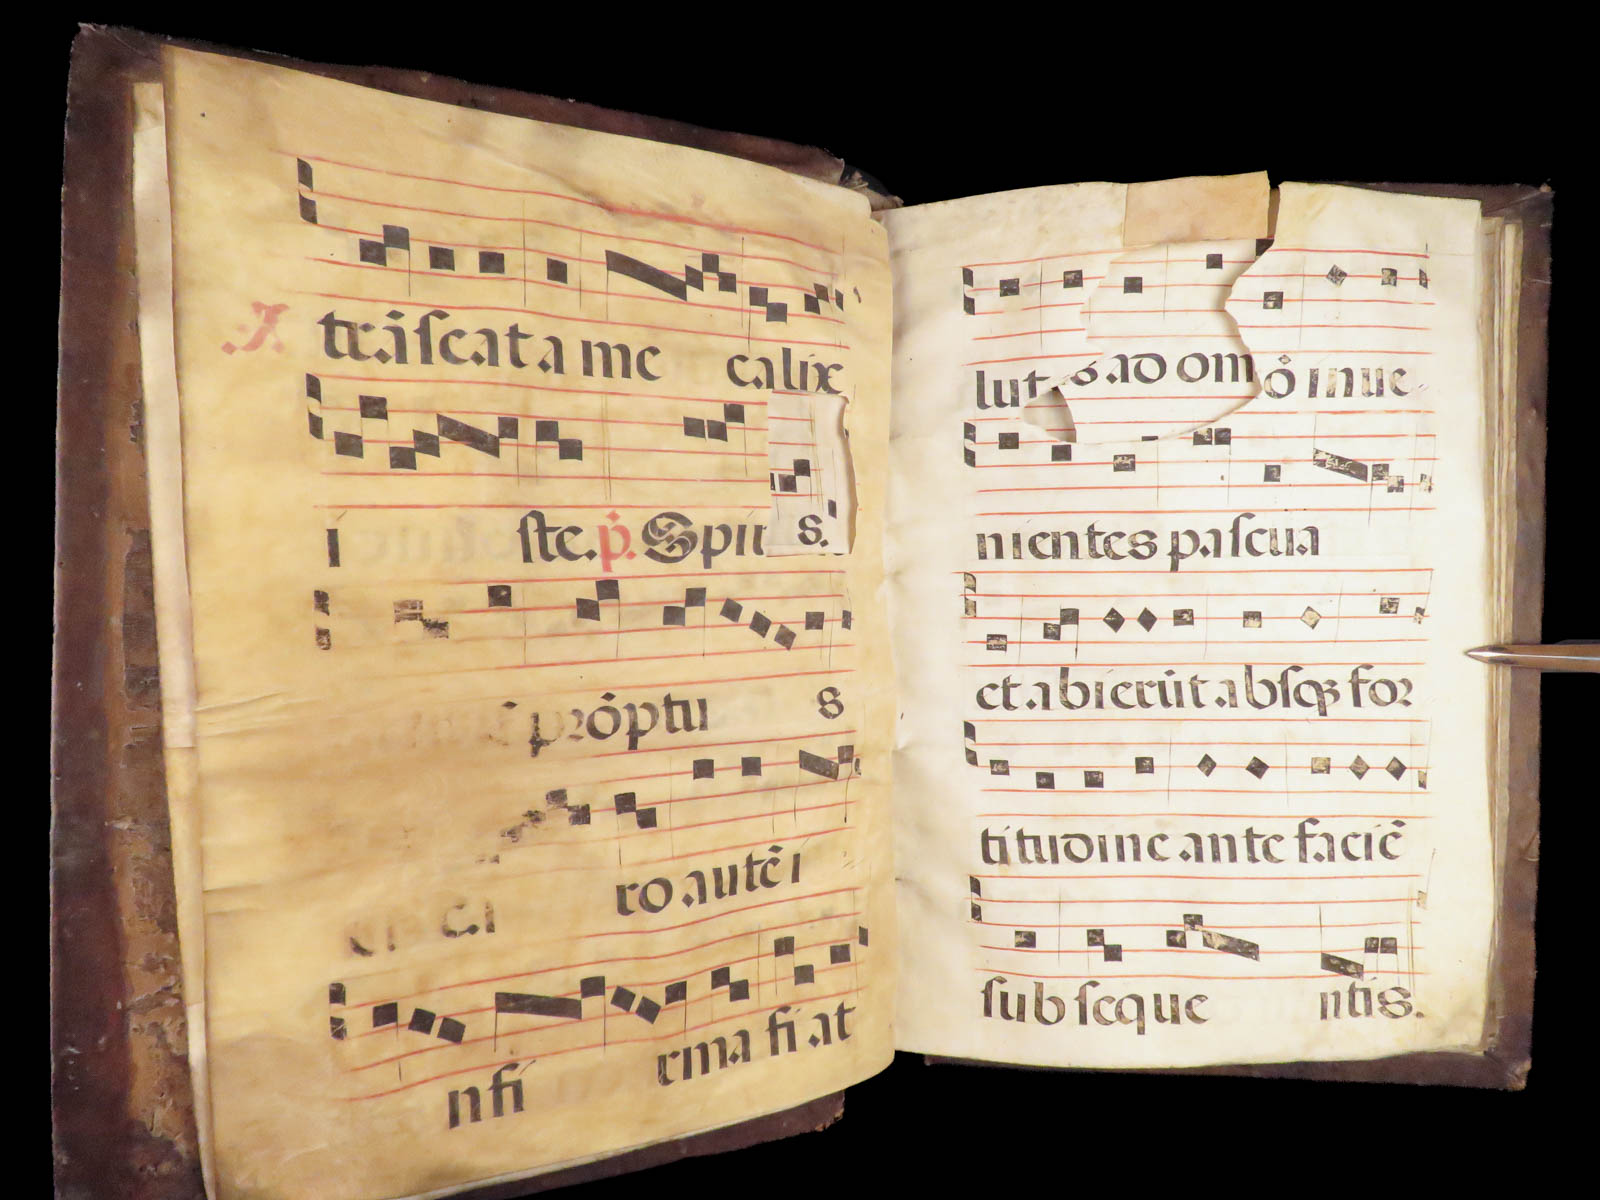 trāſeat a me calix
iſte. p̄. Spirit s.
prōptu s
ro autē i
nfi rma fi at
lut s ad om ō inue
nientes paſcua
et abierūt abſqꝫ for
titudine ante faciē
ſubſeque ntis.